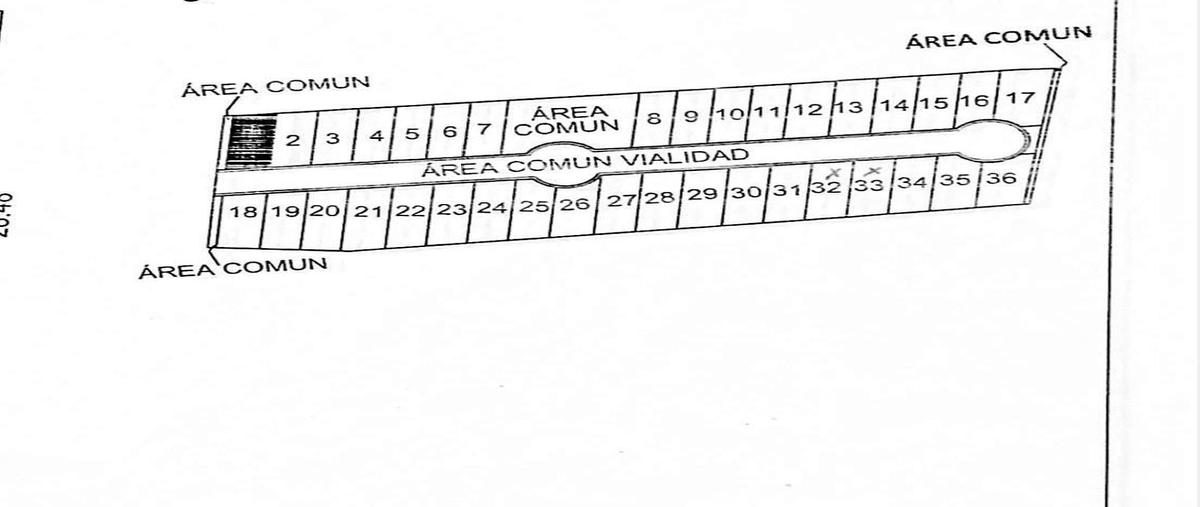 ÁREA COMUN
ÁREA COMUN
2 3 4 5 6 7 ÁREA COMUN 8 9 10 11 12 13 14 15 16 17
ÁREA COMUN VIALIDAD
18 19 20 21 22 23 24 25 26 27 28 29 30 31 32 33 34 35 36
ÁREA COMUN